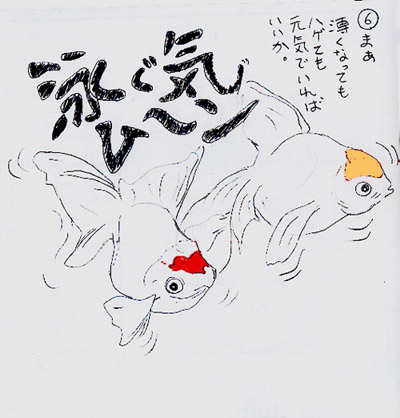 ⑥まぁ
薄くなっても
ハゲても
元気でいれば
いいか。
泳ぐ気